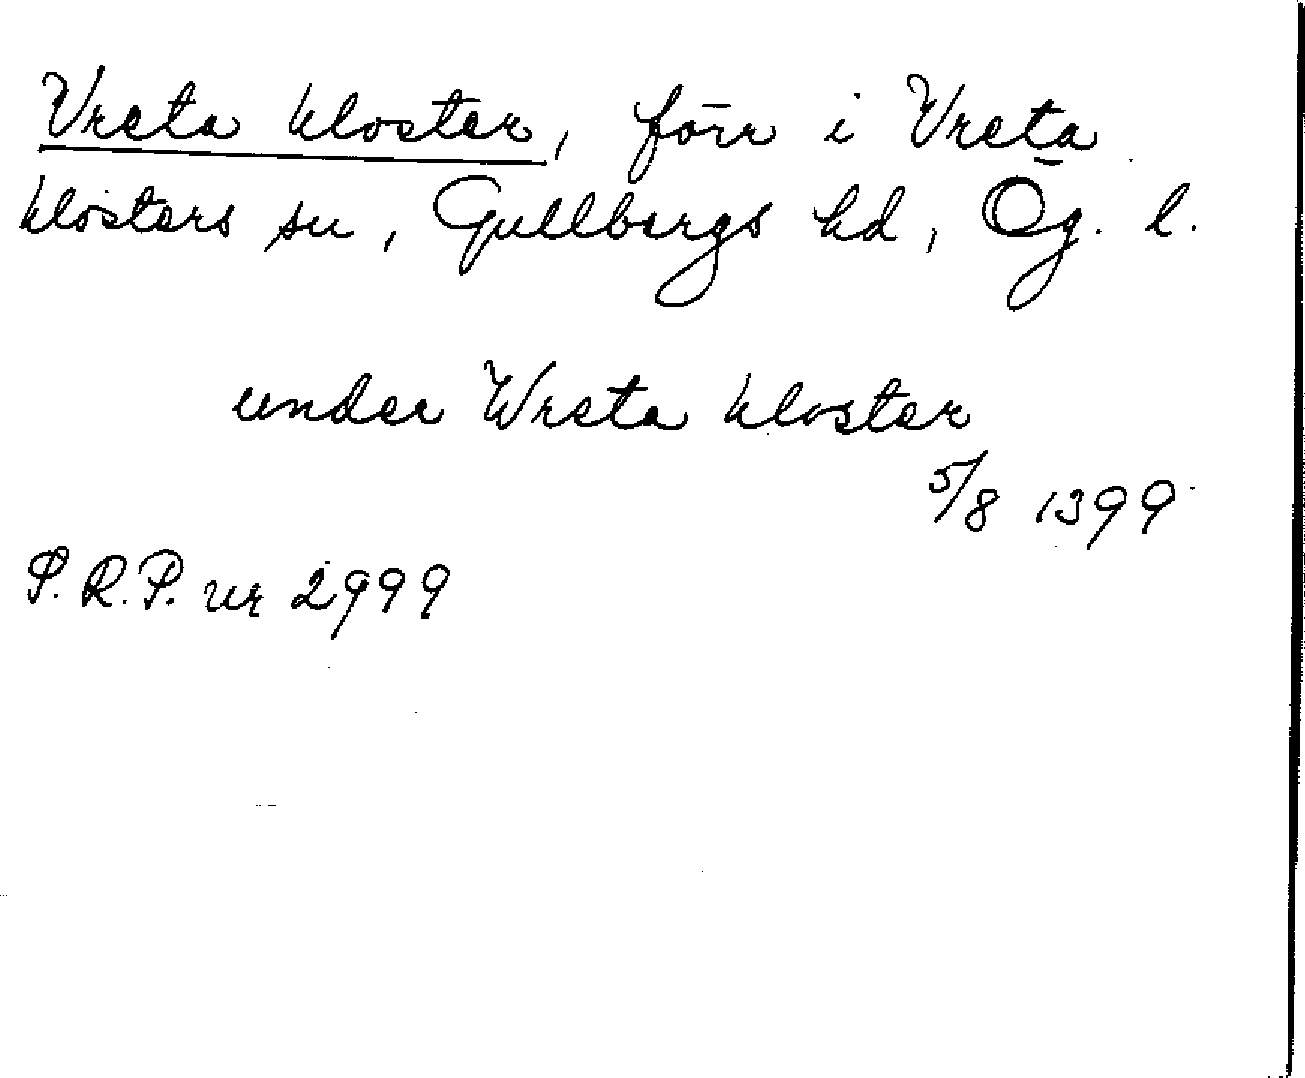 Vreta kloster, förr i Vreta
klosters sn, Gullbergs hd, Ög. l.
under Wreta kloster
5/8 1399
P. R. P. nr 2999